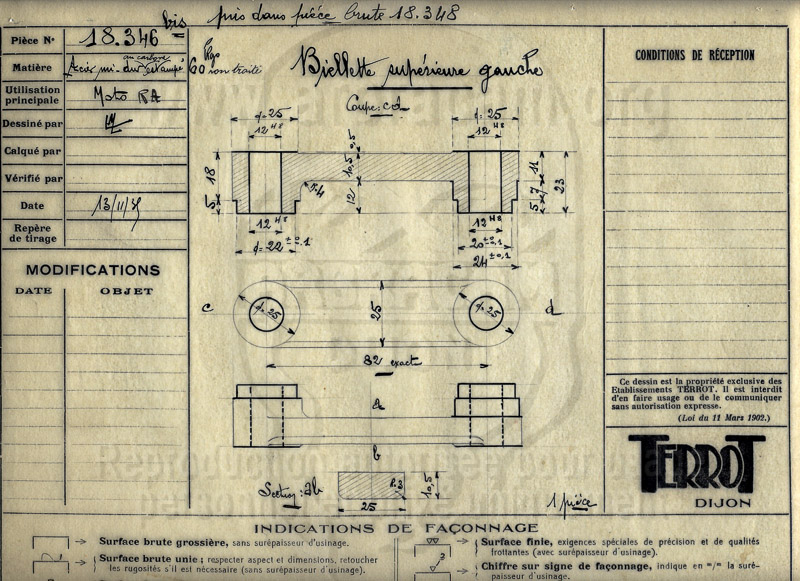 bis
pris dans pièce brute 18.348
Pièce No
18.346
Matière
au carbone
Acier mi-dur estampé
60 Kgs
non traité
Utilisation
principale
Moto RA
Dessiné par
Calqué par
Vérifié par
Date
Repère
de tirage
MODIFICATIONS
DATE
OBJET
Biellette supérieure gauche
Coupe: cd
d=25
12 H8
d=25
12 H8
18
5
10,5
0,5
12
r.4
11
7
5
23
12 H8
d=22 ±0,1
12 H8
20 ±0,1
24 ±0,1
c
d=25
25
d=25
d
82 exacte
a
b
Section: ab
R.3
10,5
25
1 pièce
CONDITIONS DE RÉCEPTION
Ce dessin est la propriété exclusive des
Etablissements TERROT. Il est interdit
d'en faire usage ou de le communiquer
sans autorisation expresse.
(Loi du 11 Mars 1902.)
TERROT
DIJON
INDICATIONS DE FAÇONNAGE
Surface brute grossière, sans surépaisseur d'usinage.
Surface brute unie; respecter aspect et dimensions, retoucher
les rugosités s'il est nécessaire (sans surépaisseur d'usinage).
Surface finie, exigences spéciales de précision et de qualités
frottantes (avec surépaisseur d'usinage).
3
Chiffre sur signe de façonnage, indique en m/m la suré-
paisseur d'usinage.